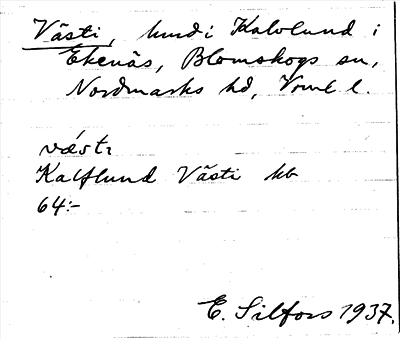 Västi, hmd i Kalvlund i
Ekenäs, Blomskogs sn,
Nordmarks hd, Vrml l.
væstı
Kalflund Västi hb
64:-
E. Silfors 1937.